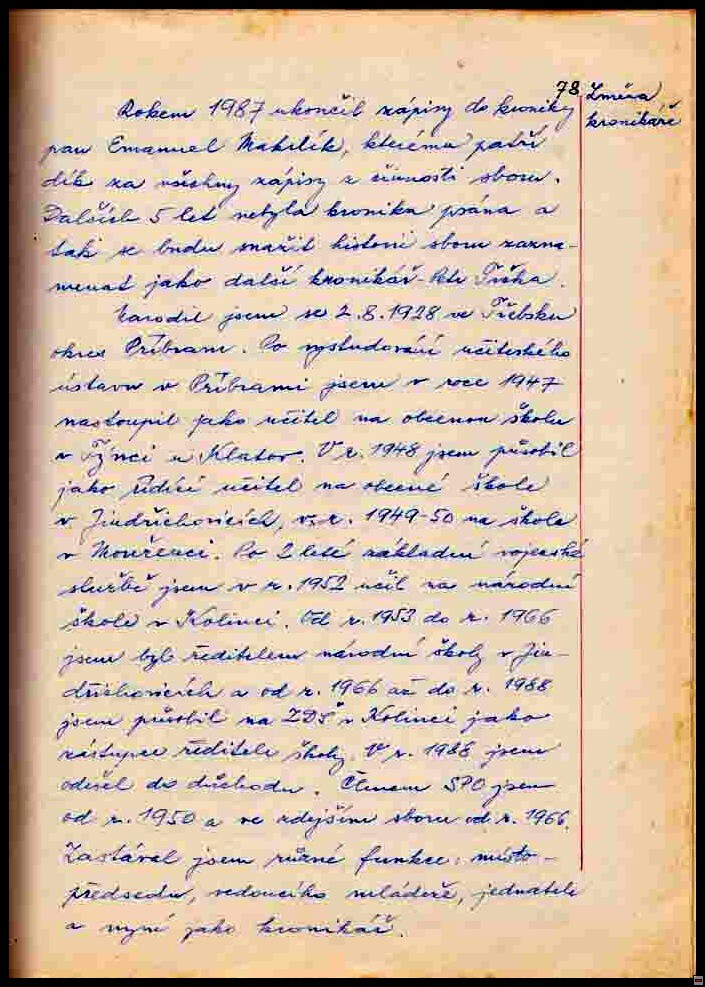 78
Změna
kronikáře
Rokem 1987 ukončil zápisy do kroniky
pan Emanuel Makrlík, kterému patří
dík za všechny zápisy z činnosti sboru.
Dalších 5 let nebyla kronika psána a
tak se budu snažit historii sboru zazna-
menat jako další kronikář Petr Tröha.
Narodil jsem se 2.8.1928 ve Třebsku
okres Příbram. Po vystudování učitelského
ústavu v Příbrami jsem v roce 1947
nastoupil jako učitel na obecnou školu
v Týnci u Klatov. V r. 1948 jsem působil
jako řídící učitel na obecné škole
v Jindřichovicích, v r. 1949-50 na škole
v Mouřenci. Po 2leté základní vojenské
službě jsem v r. 1952 učil na národní
škole v Kolinci. Od r. 1953 do r. 1966
jsem byl ředitelem národní školy v Jin-
dřichovicích a od r. 1966 až do r. 1988
jsem působil na ZDŠ v Kolinci jako
zástupce ředitele školy. V r. 1988 jsem
odešel do důchodu. Členem SPO jsem
od r. 1950 a ve zdejším sboru od r. 1966.
Zastával jsem různé funkce: místo-
předsedu, vedoucího mládeže, jednatele
a nyní jako kronikář.